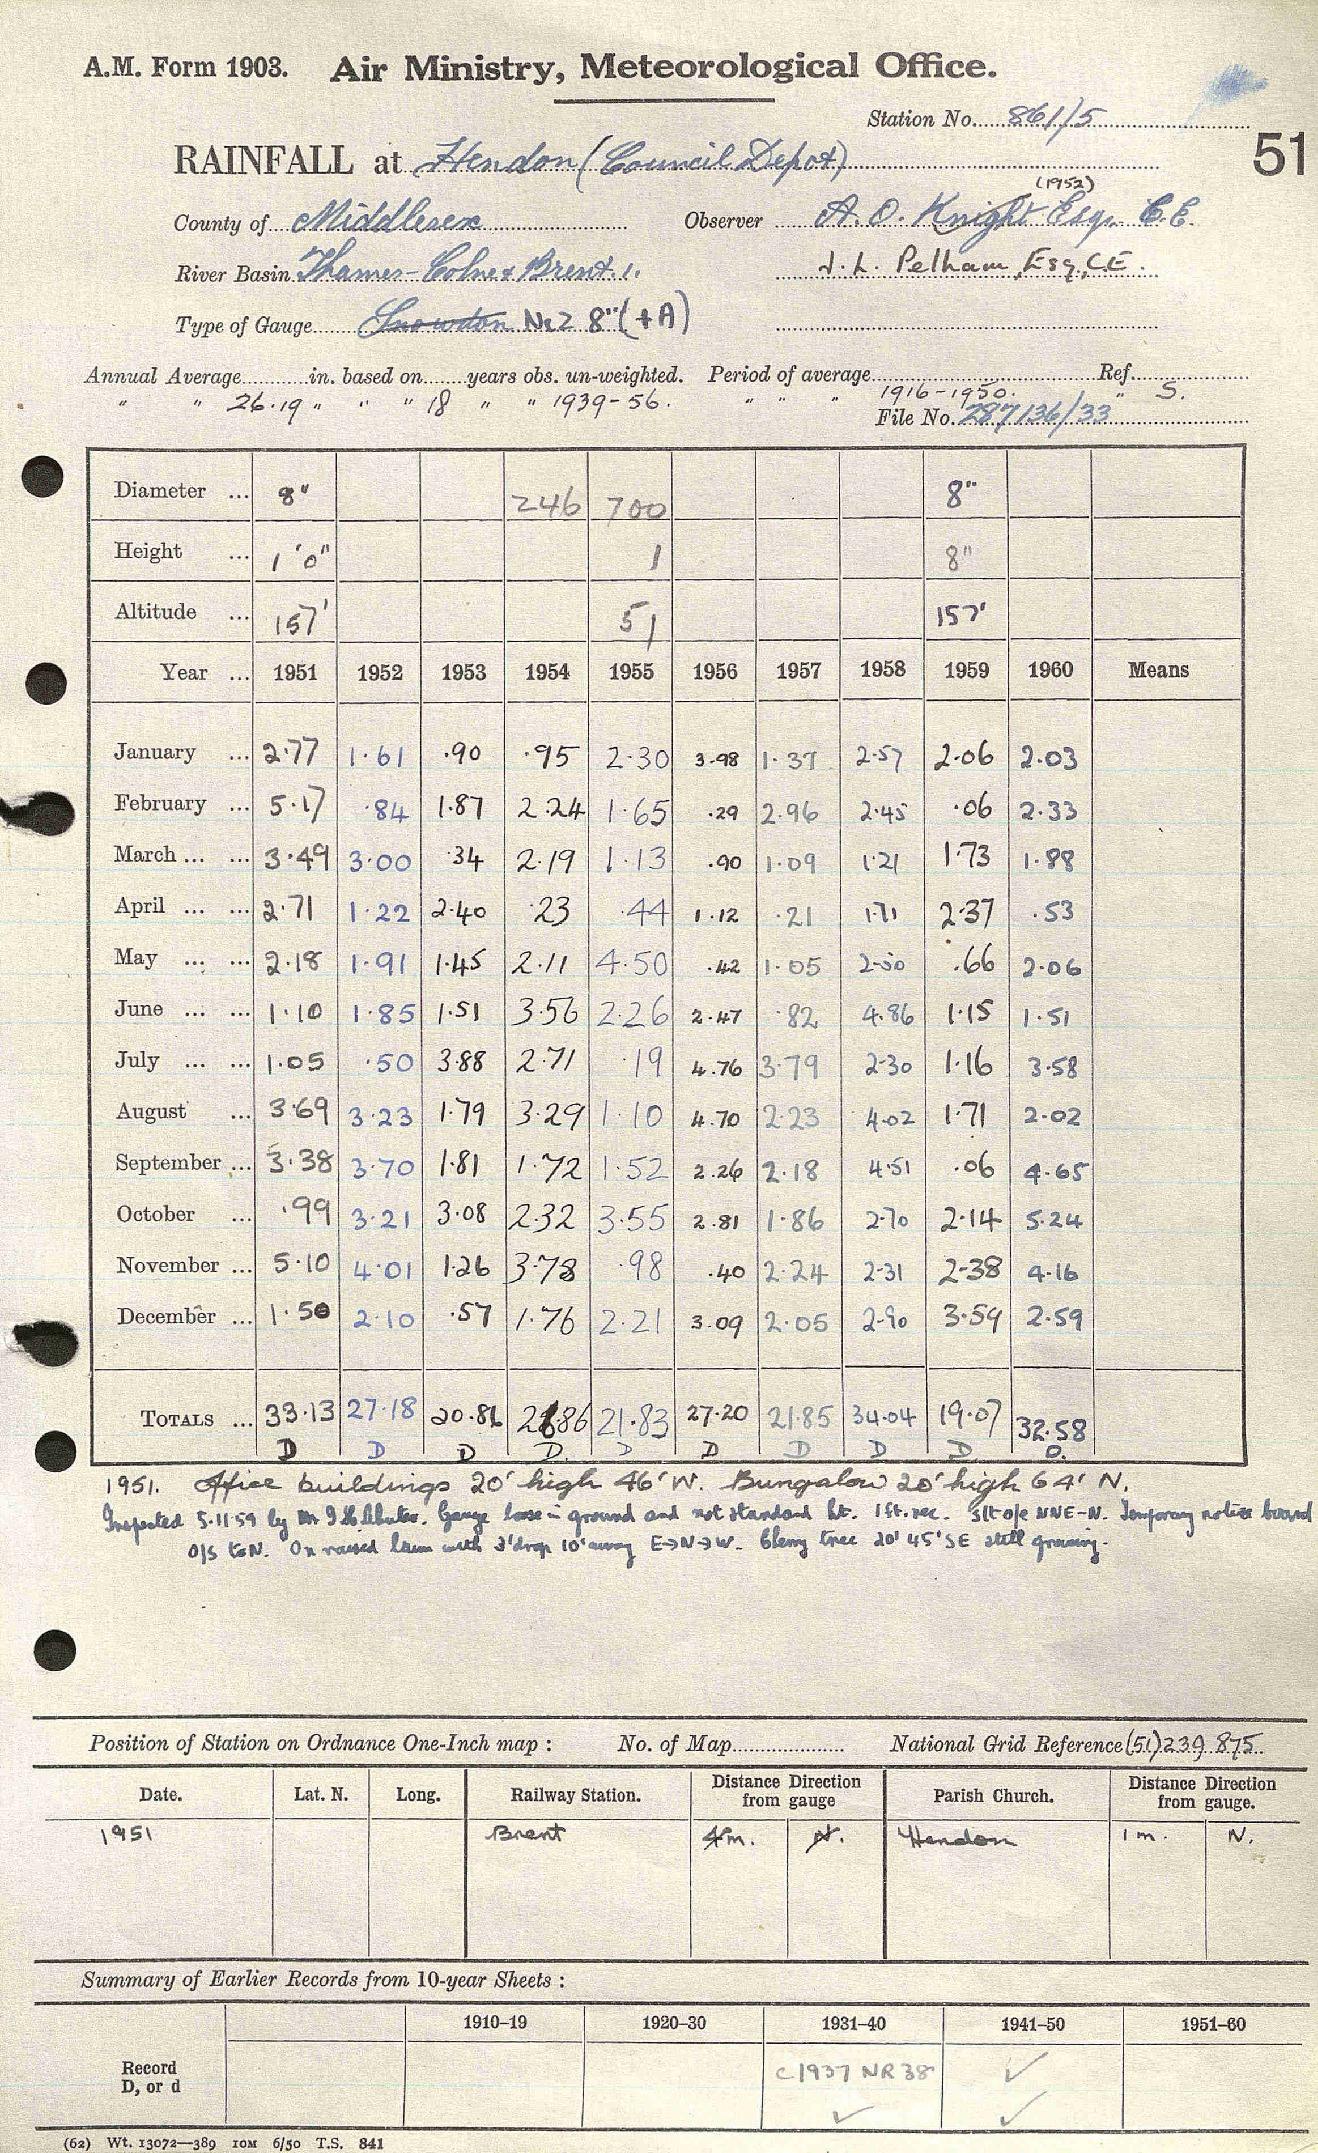 A.M. Form 1903. Air Ministry, Meteorological Office.
Station No. 861/5
51
RAINFALL at Hendon (Council Depot)
(1952)
County of Middlesex Observer A. O. Knight Esqr. C.E.
River Basin Thames-Colne & Brent 1. J. L. Pelham, Esq., C.E.
Type of Gauge Snowdon No2 8" (+A)
Annual Average in. based on years obs. un-weighted. Period of average Ref.
" " 26.19 " " " 18 " " 1939-56. " " " 1916-1950. " S.
File No. 287136/33
Diameter ... 8" 246 700 8"
Height ... 1'0" 1 8"
Altitude ... 157' 51 157'
Year ... 1951 1952 1953 1954 1955 1956 1957 1958 1959 1960 Means
January ... 2.77 1.61 .90 .95 2.30 3.98 1.37 2.57 2.06 2.03
February ... 5.17 .84 1.87 2.24 1.65 .29 2.96 2.45 .06 2.33
March ... ... 3.49 3.00 .34 2.19 1.13 .90 1.09 1.21 1.73 1.88
April ... ... 2.71 1.22 2.40 .23 .44 1.12 .21 1.71 2.37 .53
May ... ... 2.18 1.91 1.45 2.11 4.50 .42 1.05 2.50 .66 2.06
June ... ... 1.10 1.85 1.51 3.56 2.26 2.47 .82 4.86 1.15 1.51
July ... ... 1.05 .50 3.88 2.71 .19 4.76 3.79 2.30 1.16 3.58
August ... 3.69 3.23 1.79 3.29 1.10 4.70 2.23 4.02 1.71 2.02
September ... 3.38 3.70 1.81 1.72 1.52 2.26 2.18 4.51 .06 4.65
October ... .99 3.21 3.08 2.32 3.55 2.81 1.86 2.70 2.14 5.24
November ... 5.10 4.01 1.26 3.78 .98 .40 2.24 2.31 2.38 4.16
December ... 1.50 2.10 .57 1.76 2.21 3.09 2.05 2.90 3.59 2.59
TOTALS ... 33.13 27.18 20.86 26.86 21.83 27.20 21.85 34.04 19.07 32.58
D D D D. D D D D D. D.
1951. Office buildings 20' high 46' W. Bungalow 20' high 64' N.
Inspected 5.11.59 by Mr Gauge loose in ground and not standard ht. 1ft. rec. Slt o/e NNE-N. Temporary notice board
O/S to N. On raised lawn with 2' drop 10' away E→N→W. Cherry tree 20' 45' SE still growing.
Position of Station on Ordnance One-Inch map : No. of Map National Grid Reference (51) 239 875
Date. Lat. N. Long. Railway Station. Distance Direction from gauge Parish Church. Distance Direction from gauge.
1951 Brent 4m. N. Hendon 1 m. N.
Summary of Earlier Records from 10-year Sheets :
1910–19 1920–30 1931–40 1941–50 1951–60
Record D, or d c 1937 NR 38 ✓
✓ ✓
(62) Wt. 13072—389 10M 6/50 T.S. 841